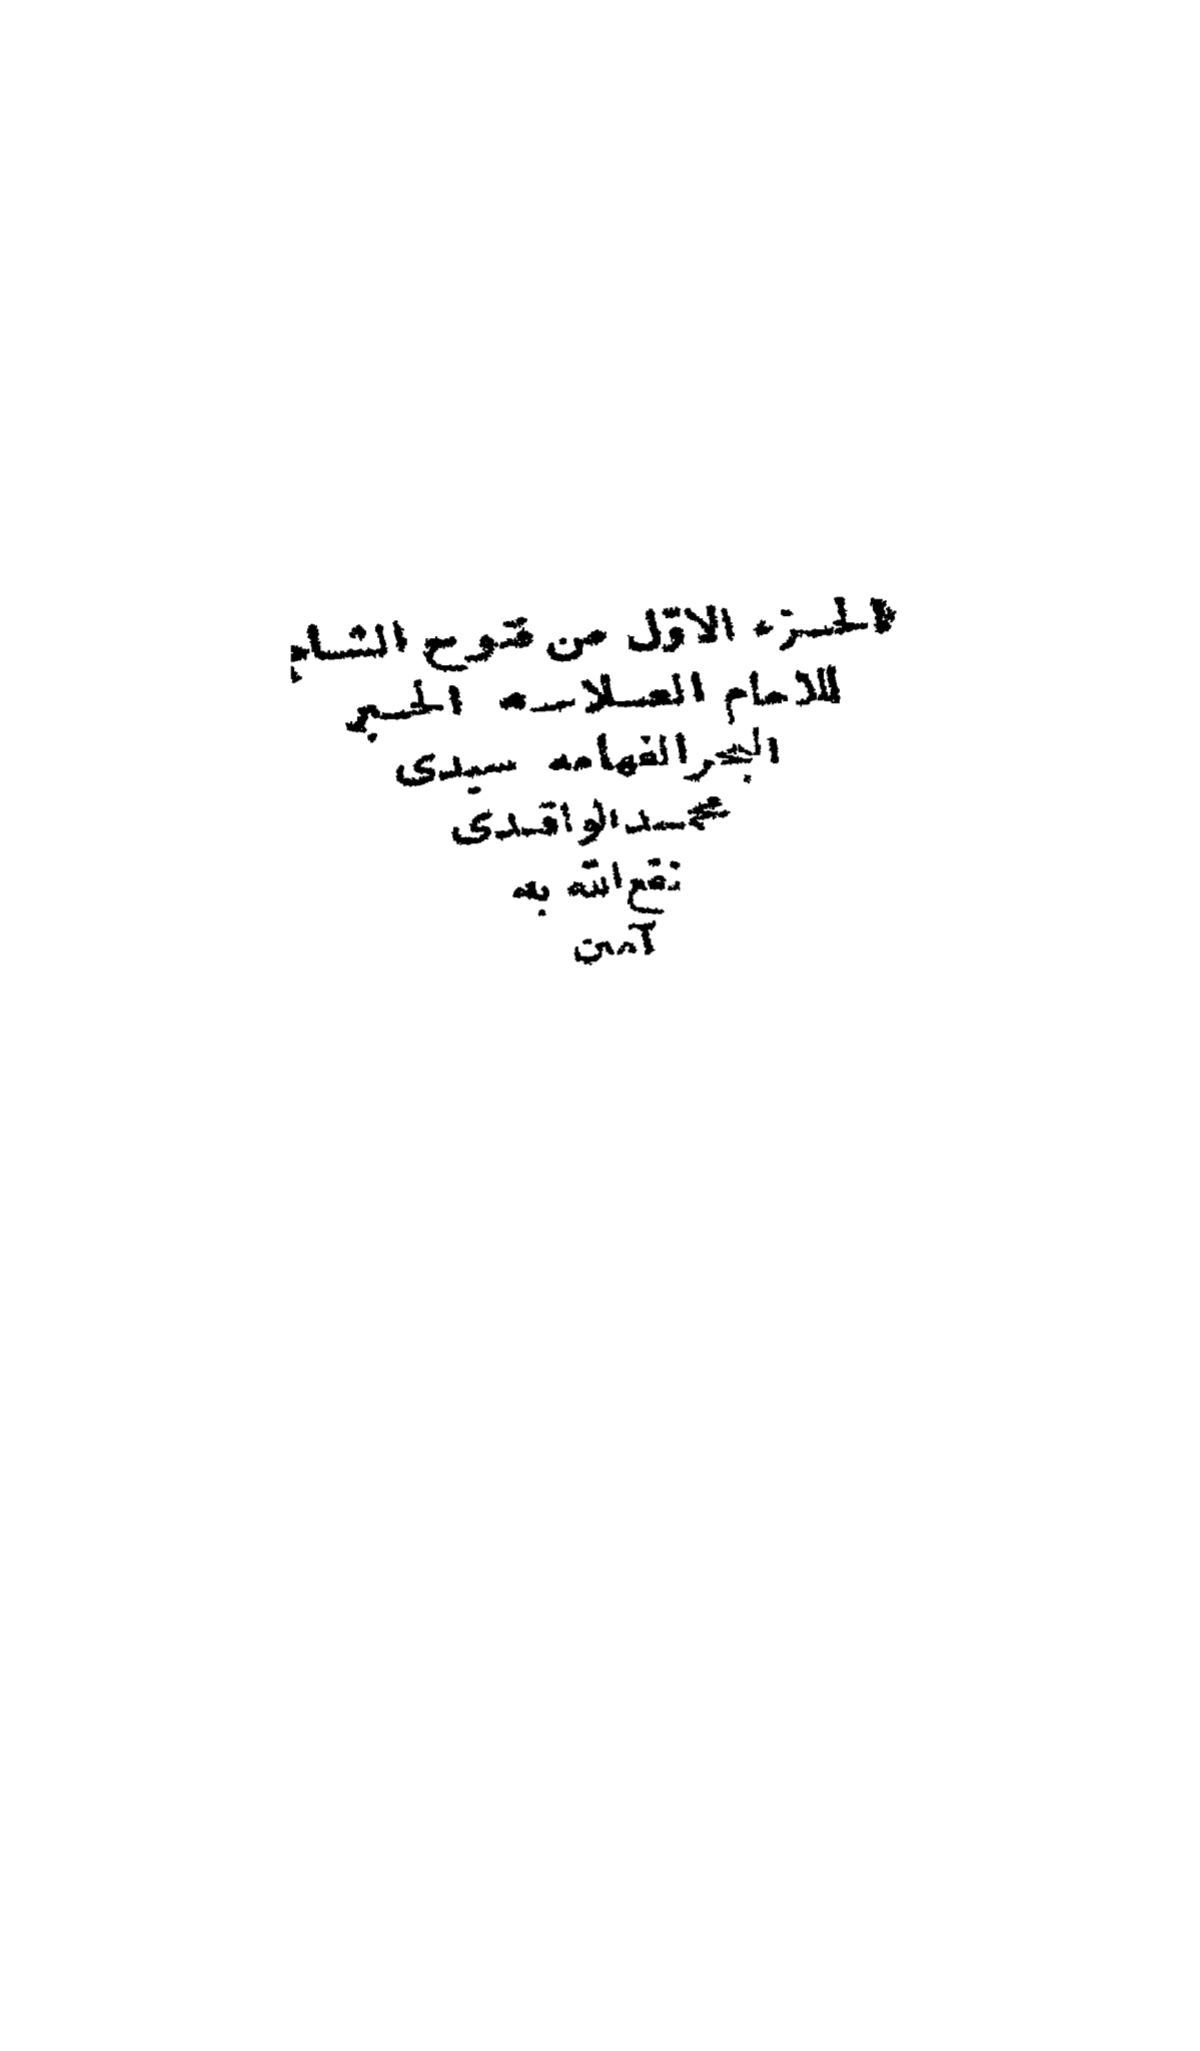 الجزء الاوّل من فتوح الشام
للامام العلامه الحبر
البحر الفهامه سيدى
محمد الواقدى
نفع الله به
آمين